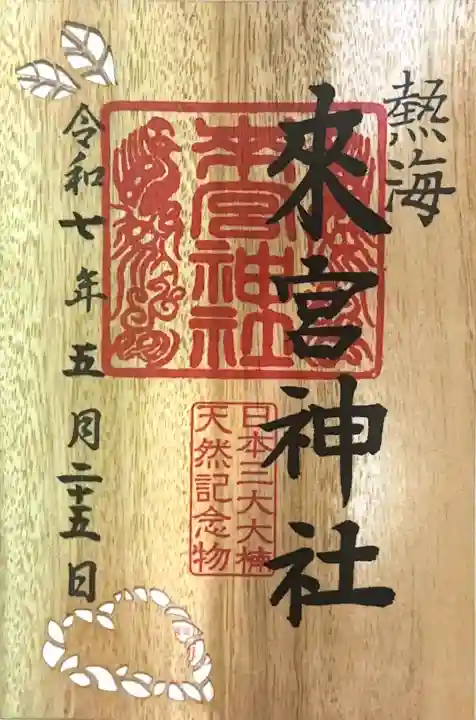 熱海
來宮神社
来宮神社
日本三大大楠
天然記念物
令和七年五月二十五日